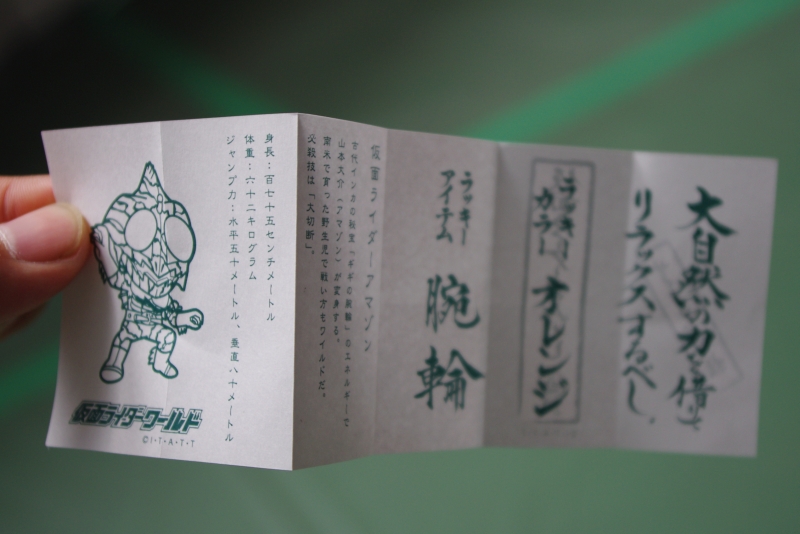 大自然の力を借りて
リラックスするべし。
ラッキー
カラー
オレンジ
ラッキー
アイテム
腕輪
仮面ライダーアマゾン
古代インカの秘宝「ギギの腕輪」のエネルギーで
山本大介(アマゾン)が変身する。
南米で育った野生児で戦い方もワイルドだ。
必殺技は「大切断」。
身長:百七十五センチメートル
体重:六十二キログラム
ジャンプ力:水平五十メートル、垂直八十メートル
仮面ライダーワールド
©I・T・A・T・T